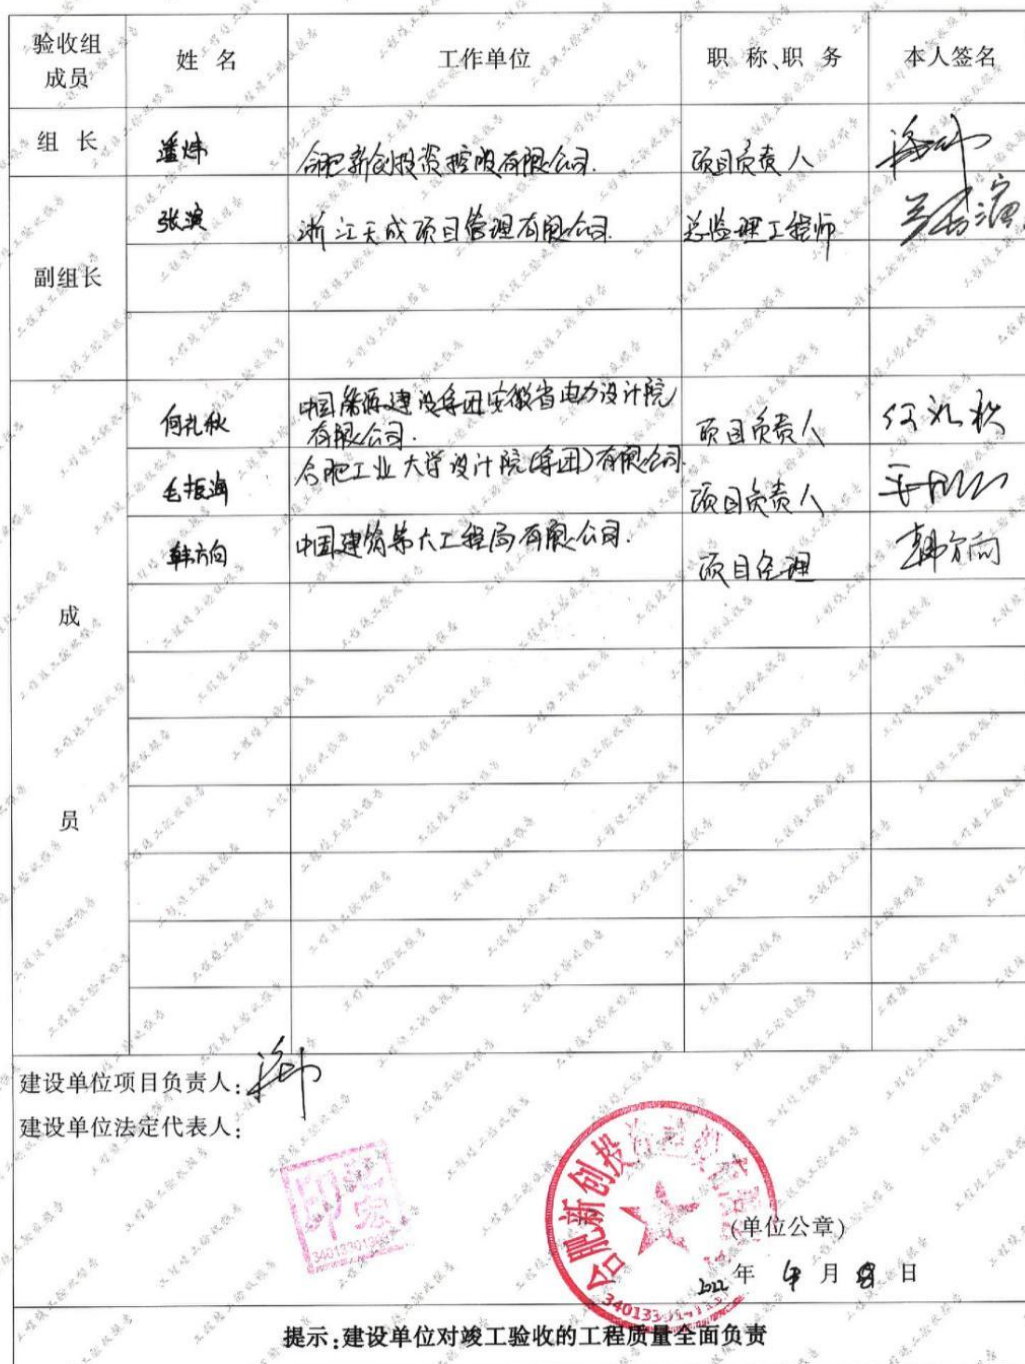 验收组成员 姓 名 工作单位 职 称、职 务 本人签名
组 长 合肥新创投资控股有限公司. 项目负责人
副组长 张滨 浙江天成项目管理有限公司. 总监理工程师
成 员
何礼秋 中国能源建设集团安徽省电力设计院有限公司. 项目负责人 何礼秋
毛振海 合肥工业大学设计院(集团)有限公司. 项目负责人
韩方向 中国建筑第六工程局有限公司. 项目经理 韩方向
建设单位项目负责人:
建设单位法定代表人:
合肥新创投资控股有限公司
(单位公章)
2022 年 月 日
提示:建设单位对竣工验收的工程质量全面负责
工程竣工验收报告